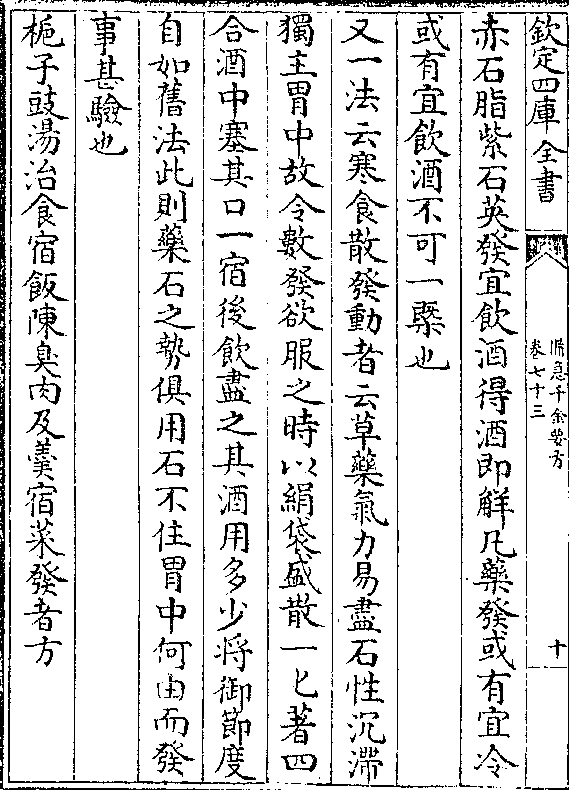 欽定四庫全書
備急千金要方
卷七十三
十
赤石脂紫石英發宜飲酒得酒即解凡藥發或有宜冷
或有宜飲酒不可一槩也
又一法云寒食散發動者云草藥氣力易盡石性沉滯
獨主胃中故令數發欲服之時以絹袋盛散一匕著四
合酒中塞其口一宿後飲盡之其酒用多少將御節度
自如舊法此則藥石之勢俱用石不住胃中何由而發
事甚驗也
梔子豉湯治食宿飯陳臭肉及羹宿菜發者方